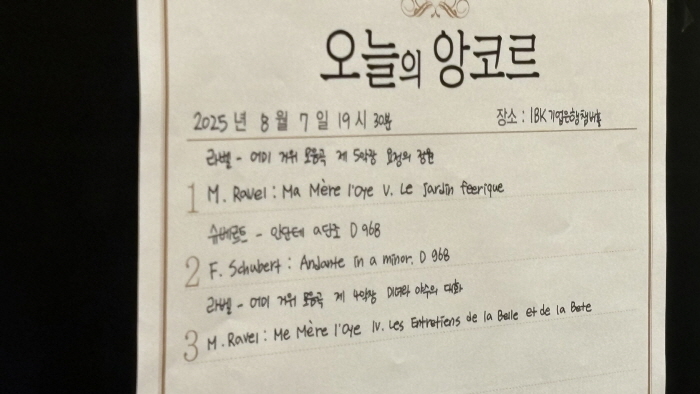 오늘의 앙코르
2025년 8월 7일 19시 30분 장소 : IBK기업은행챔버홀
라벨 - 어미 거위 모음곡 제 5악장 요정의 정원
1 M. Ravel : Ma Mère l'Oye V. Le Jardin féerique
슈베르트 - 안단테 a단조 D 968
2 F. Schubert : Andante in a minor, D 968
라벨 - 어미 거위 모음곡 제 4악장 미녀와 야수의 대화
3 M. Ravel : Me Mère l'Oye IV. Les Entretiens de la Belle et de la Bete